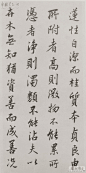 蓮性自潔而桂質本貞良由
所附者高則微物不能累所
憑者淨則濁類不能沾夫以
卉木無知猶資善而成善況